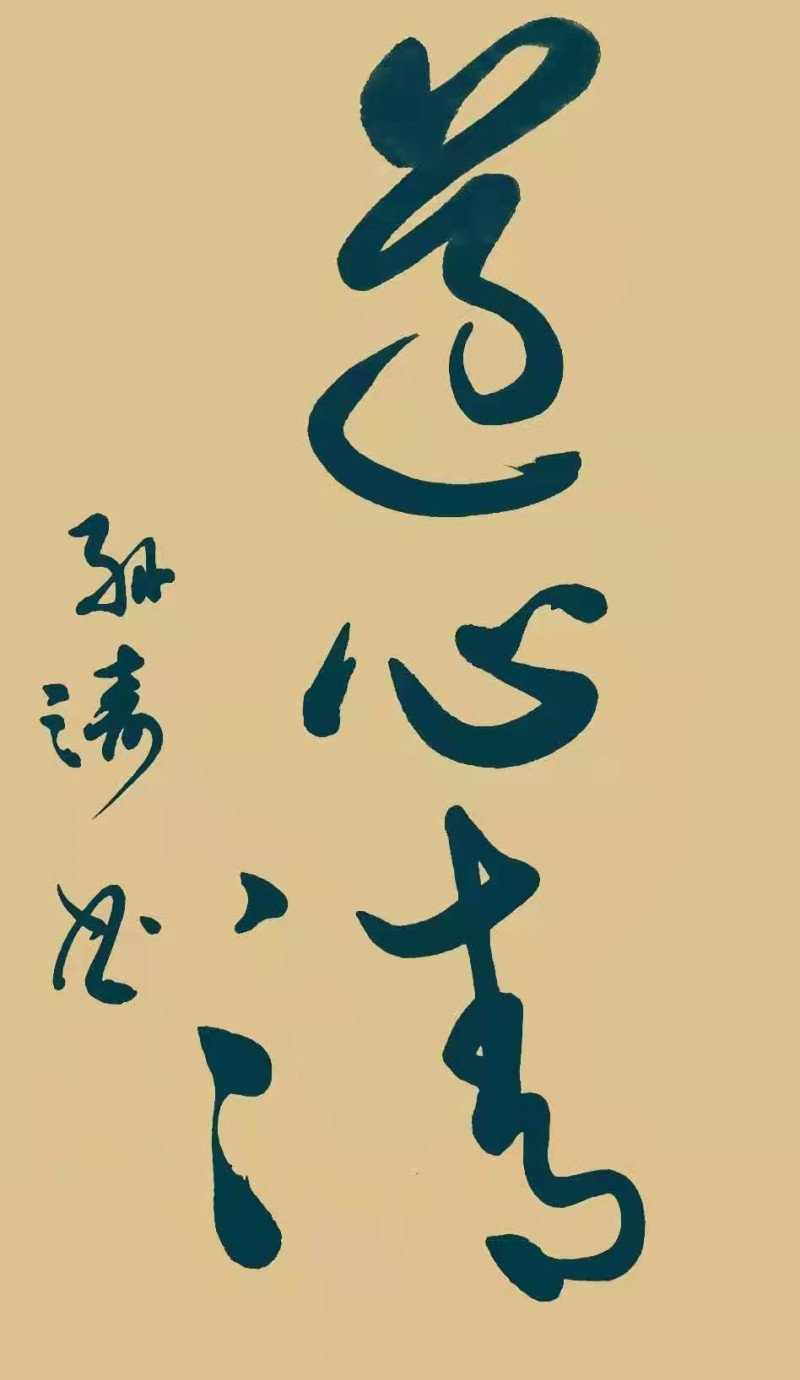 道心清
孙涛书